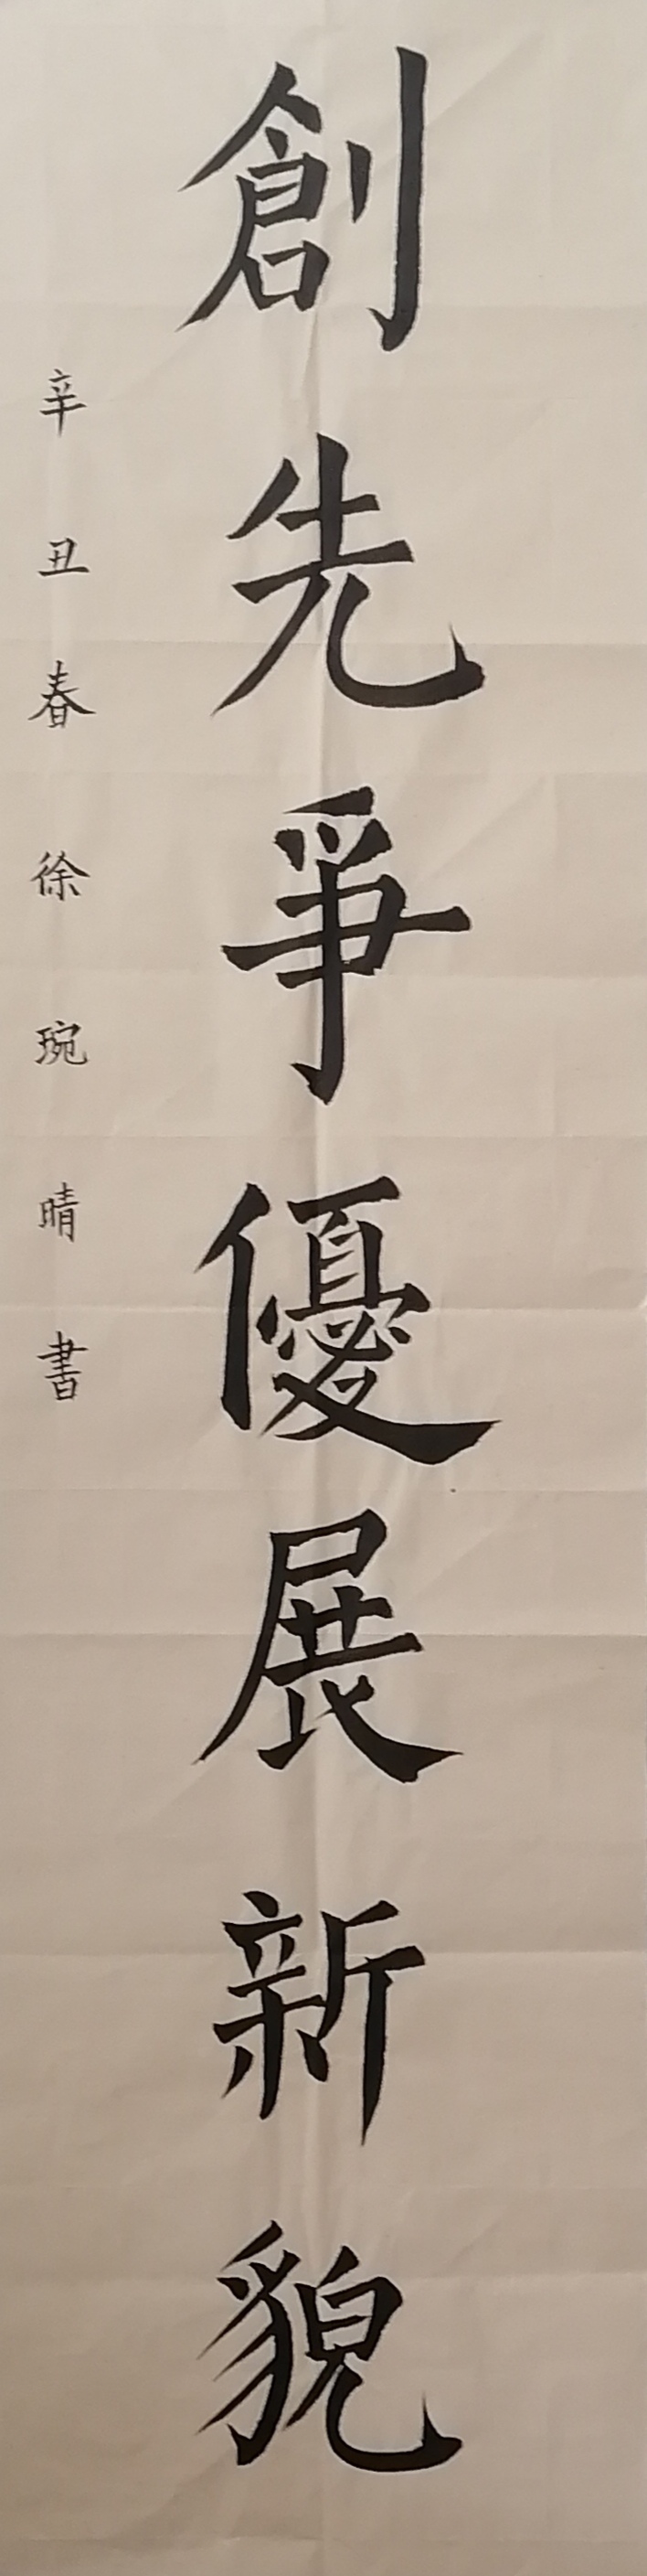 創先爭優展新貌
辛丑春徐琬晴書